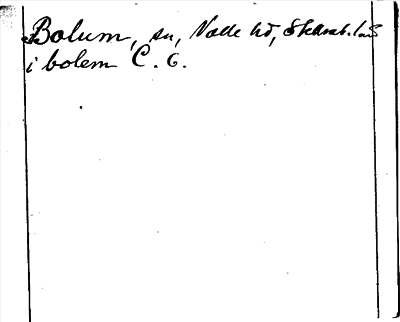 Bolum, sn, Valle hd, Skarab. län
i bolem C. G.